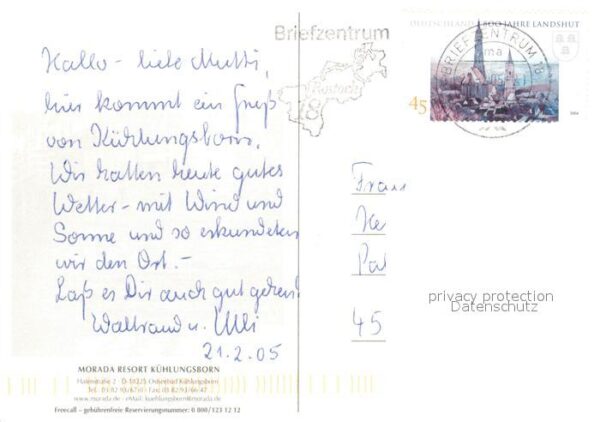 Hallo - liebe Mutti,
hier kommt ein Gruß
von Kühlungsborn.
Wir hatten heute gutes
Wetter - mit Wind und
Sonne und so erkundeten
wir den Ort. -
Laß es Dir auch gut gehen!
Waltraud u. Ulli
21.2.05
MORADA RESORT KÜHLUNGSBORN
Hafenstraße 2 · D-18225 Ostseebad Kühlungsborn
www.morada.de · eMail: kuehlungsborn@morada.de
Freecall – gebührenfreie Reservierungsnummer: 0 800/123 12 12
Briefzentrum
Rostock
18
DEUTSCHLAND 800 JAHRE LANDSHUT
45
BRIEFZENTRUM 18
Frau
45
privacy protection
Datenschutz